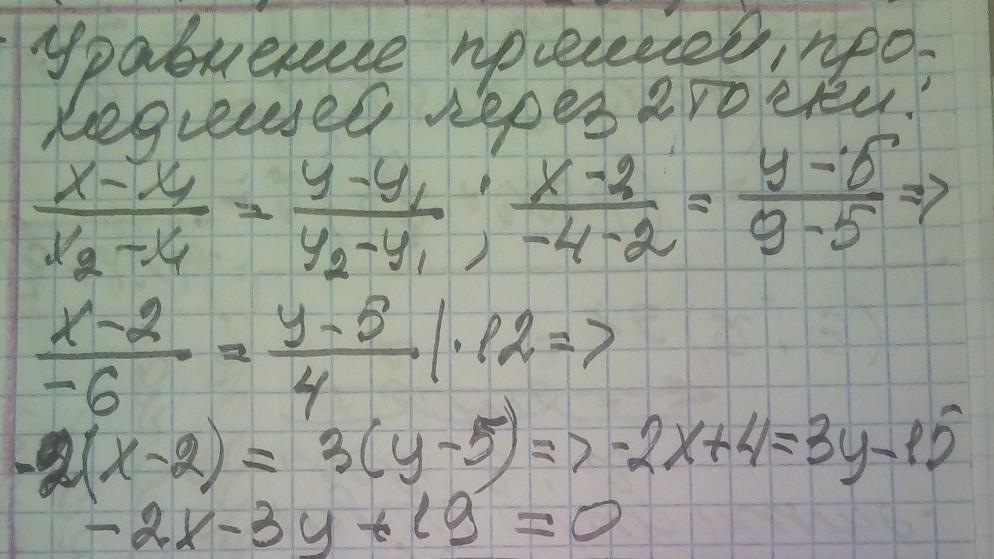 Уравнение прямой, про-
ходящей через 2 точки:
x-x₁/x₂-x₁ = y-y₁/y₂-y₁ ; x-2/-4-2 = y-5/9-5 =>
x-2/-6 = y-5/4 |·12 =>
-2(x-2) = 3(y-5) => -2x+4=3y-15
-2x-3y+19=0